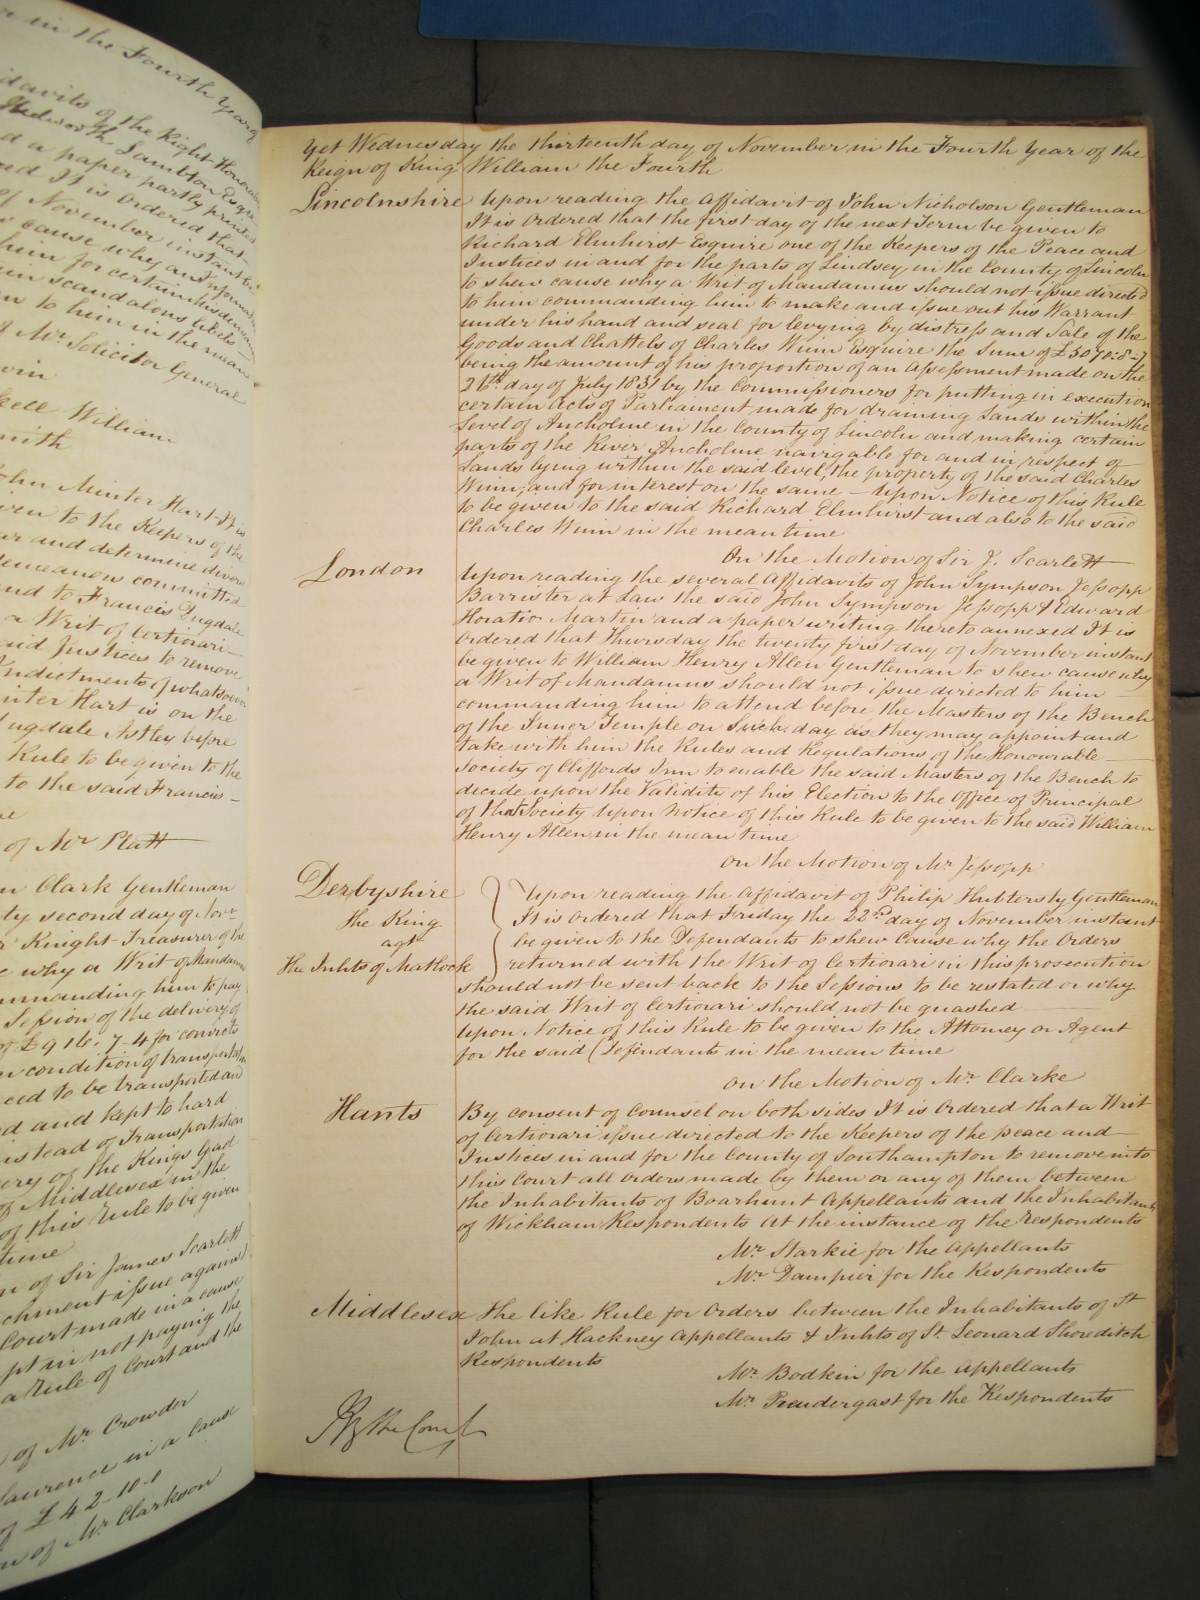 in the Fourth Year of
davits of the Right Honorable
Hedworth Lambton Esqre
d a paper partly printed
ed It is ordered that
of November instant be
cause why an Information
him for certain Misdemeanors
scandalous libels
to him in the mean
Mr. Solicitor General
William
mith
John Minter Hart It is
ven to the Keepers of the
ar and determine divers
demeanors committed
nd to Francis Dugdale
a Writ of Certiorari
aid Justices to remove
Indictments of whatsoever
inter Hart is on the
ugdale Astley before
Rule to be given to the
to the said Francis
of Mr Platt
Clark Gentleman
ty second day of Novr
Knight Treasurer of the
why a Writ of Mandamus
mmanding him to pay
Session of the delivery of
of £916.7.4 for convicts
condition of transportation
ced to be transported and
d and kept to hard
nstead of Transportation
ery of the Kings Gaol
of Middlesex in the
of this Rule to be given
time
of Sir James Scarlett
chment issue against
Court made in a cause
pt in not paying the
a Rule of Court and the
of Mr Crowder
Lawrence in a Cause
of £42-10-1
of Mr Clarkson
Yet Wednesday the thirteenth day of November in the Fourth Year of the
Reign of King William the Fourth
Lincolnshire Upon reading the Affidavit of John Nicholson Gentleman
It is Ordered that the first day of the next Term be given to
Richard Elmhirst Esquire one of the Keepers of the Peace and
Justices in and for the parts of Lindsey in the County of Lincoln
to shew cause why a Writ of Mandamus should not issue directed
to him commanding him to make and issue out his Warrant
under his hand and seal for levying by distress and Sale of the
Goods and Chattels of Charles Winn Esquire the Sum of £5070:8-7
being the amount of his proportion of an Assessment made on the
26th day of July 1831 by the Commissioners for putting in execution
certain Acts of Parliament made for draining Lands within the
Level of Ancholme in the County of Lincoln and making certain
parts of the River Ancholme navigable for and in respect of
Lands lying within the said level, the property of the said Charles
Winn, and for interest on the same – Upon Notice of this Rule
to be given to the said Richard Elmhirst and also to the said
Charles Winn in the mean time
On the Motion of Sir J. Scarlett
London Upon reading the several Affidavits of John Sympson Jessopp
Barrister at Law the said John Sympson Jessopp & Edward
Horatio Martin and a paper writing thereto annexed It is
ordered that Thursday the twenty first day of November instant
be given to William Henry Allen Gentleman to shew cause why
a Writ of Mandamus should not issue directed to him
commanding him to attend before the Masters of the Bench
of the Inner Temple on Such day as they may appoint and
take with him the Rules and Regulations of the Honourable
Society of Cliffords Inn to enable the said Masters of the Bench to
decide upon the Validity of his Election to the Office of Principal
of that Society Upon Notice of this Rule to be given to the said William
Henry Allen in the mean time
On the Motion of Mr Jessopp
Derbyshire
the King
agt
the Inhts of Matlock
Upon reading the Affidavit of Philip Hubbersty Gentleman
It is Ordered that Friday the 22d day of November instant
be given to the Defendants to shew Cause why the Orders
returned with the Writ of Certiorari in this prosecution
should not be sent back to the Sessions to be restated or why
the said Writ of Certiorari should not be quashed
Upon Notice of this Rule to be given to the Attorney or Agent
for the said Defendants in the mean time
On the Motion of Mr. Clarke
Hants By consent of Counsel on both sides It is Ordered that a Writ
of Certiorari issue directed to the Keepers of the peace and
Justices in and for the County of Southampton to remove into
this Court all orders made by them or any of them between
the Inhabitants of Boarhunt Appellants and the Inhabitants
of Wickham Respondents At the instance of the Respondents
Mr. Starkie for the Appellants
Mr Dampier for the Respondents
Middlesex The like Rule for Orders between the Inhabitants of St
John at Hackney Appellants & Inhts of St. Leonard Shoreditch
Respondents
Mr. Bodkin for the Appellants
Mr Prendergast for the Respondents
By the Court